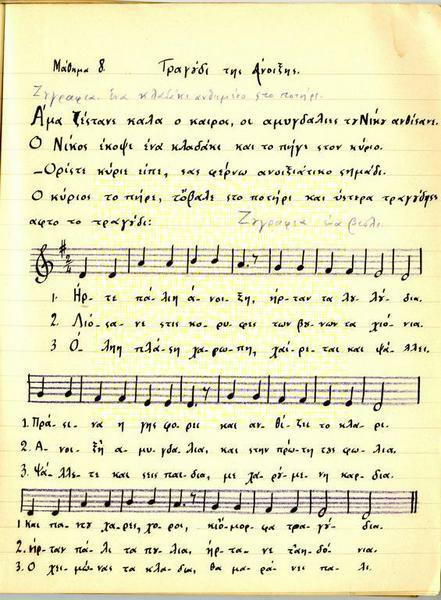 Μάθημα 8. Τραγύδι της Άνοιξης.
Ζυγραφια ένα κλαδάκι ανθισμένο στο ποτήρι.
Άμα ζέστανε καλα ο καιρος, οι αμυγδαλιες τυ Νίκυ ανθίσανε.
Ο Νίκος έκοψε ένα κλαδάκι και το πήγε στον κύριο.
–Ορίστε κύριε είπε, σας φέρνω ανοιξιάτικο σημάδι.
Ο κύριος το πήρε, τόβαλε στο ποτήρι και ύστερα τραγύδησε
αφτο το τραγύδι: Ζυγραφια ένα
1. Ήρ- τε πά- λι η ά- νοι- ξη, ήρ- ταν τα λυ- λύ- δια.
2. Λιό- σα- νε στις κο- ρυ- φες των βυ- νων τα χιό- νια.
3 Ό- λη η πλά- ση χα- ρω- πη, χαί- ρε- ται και ψά- λλει.
1. Πρά- σι- να η γης φο- ρει και αν- θί- ζει το κλα- ρι.
2. Α- νοι- ξε η α- μυ- γδα- λια, και στην πρώ- τη της φω- λια,
3. Ψά- λλε- τε και σεις παι- δια, με χα- ρύ- με- νη καρ- δια.
1 Και πα- ντυ χα- ρες, χο- ροι, κι όμορ- φα τρα- γύ- δια.
2. ήρ- ταν πά- λι τα πυ- λια, ήρ- τα- νε τ' αη- δό- νια.
3. Ο χει- μώ- νας τα κλα- δια, θα μα- ρά- νει πά- λι.